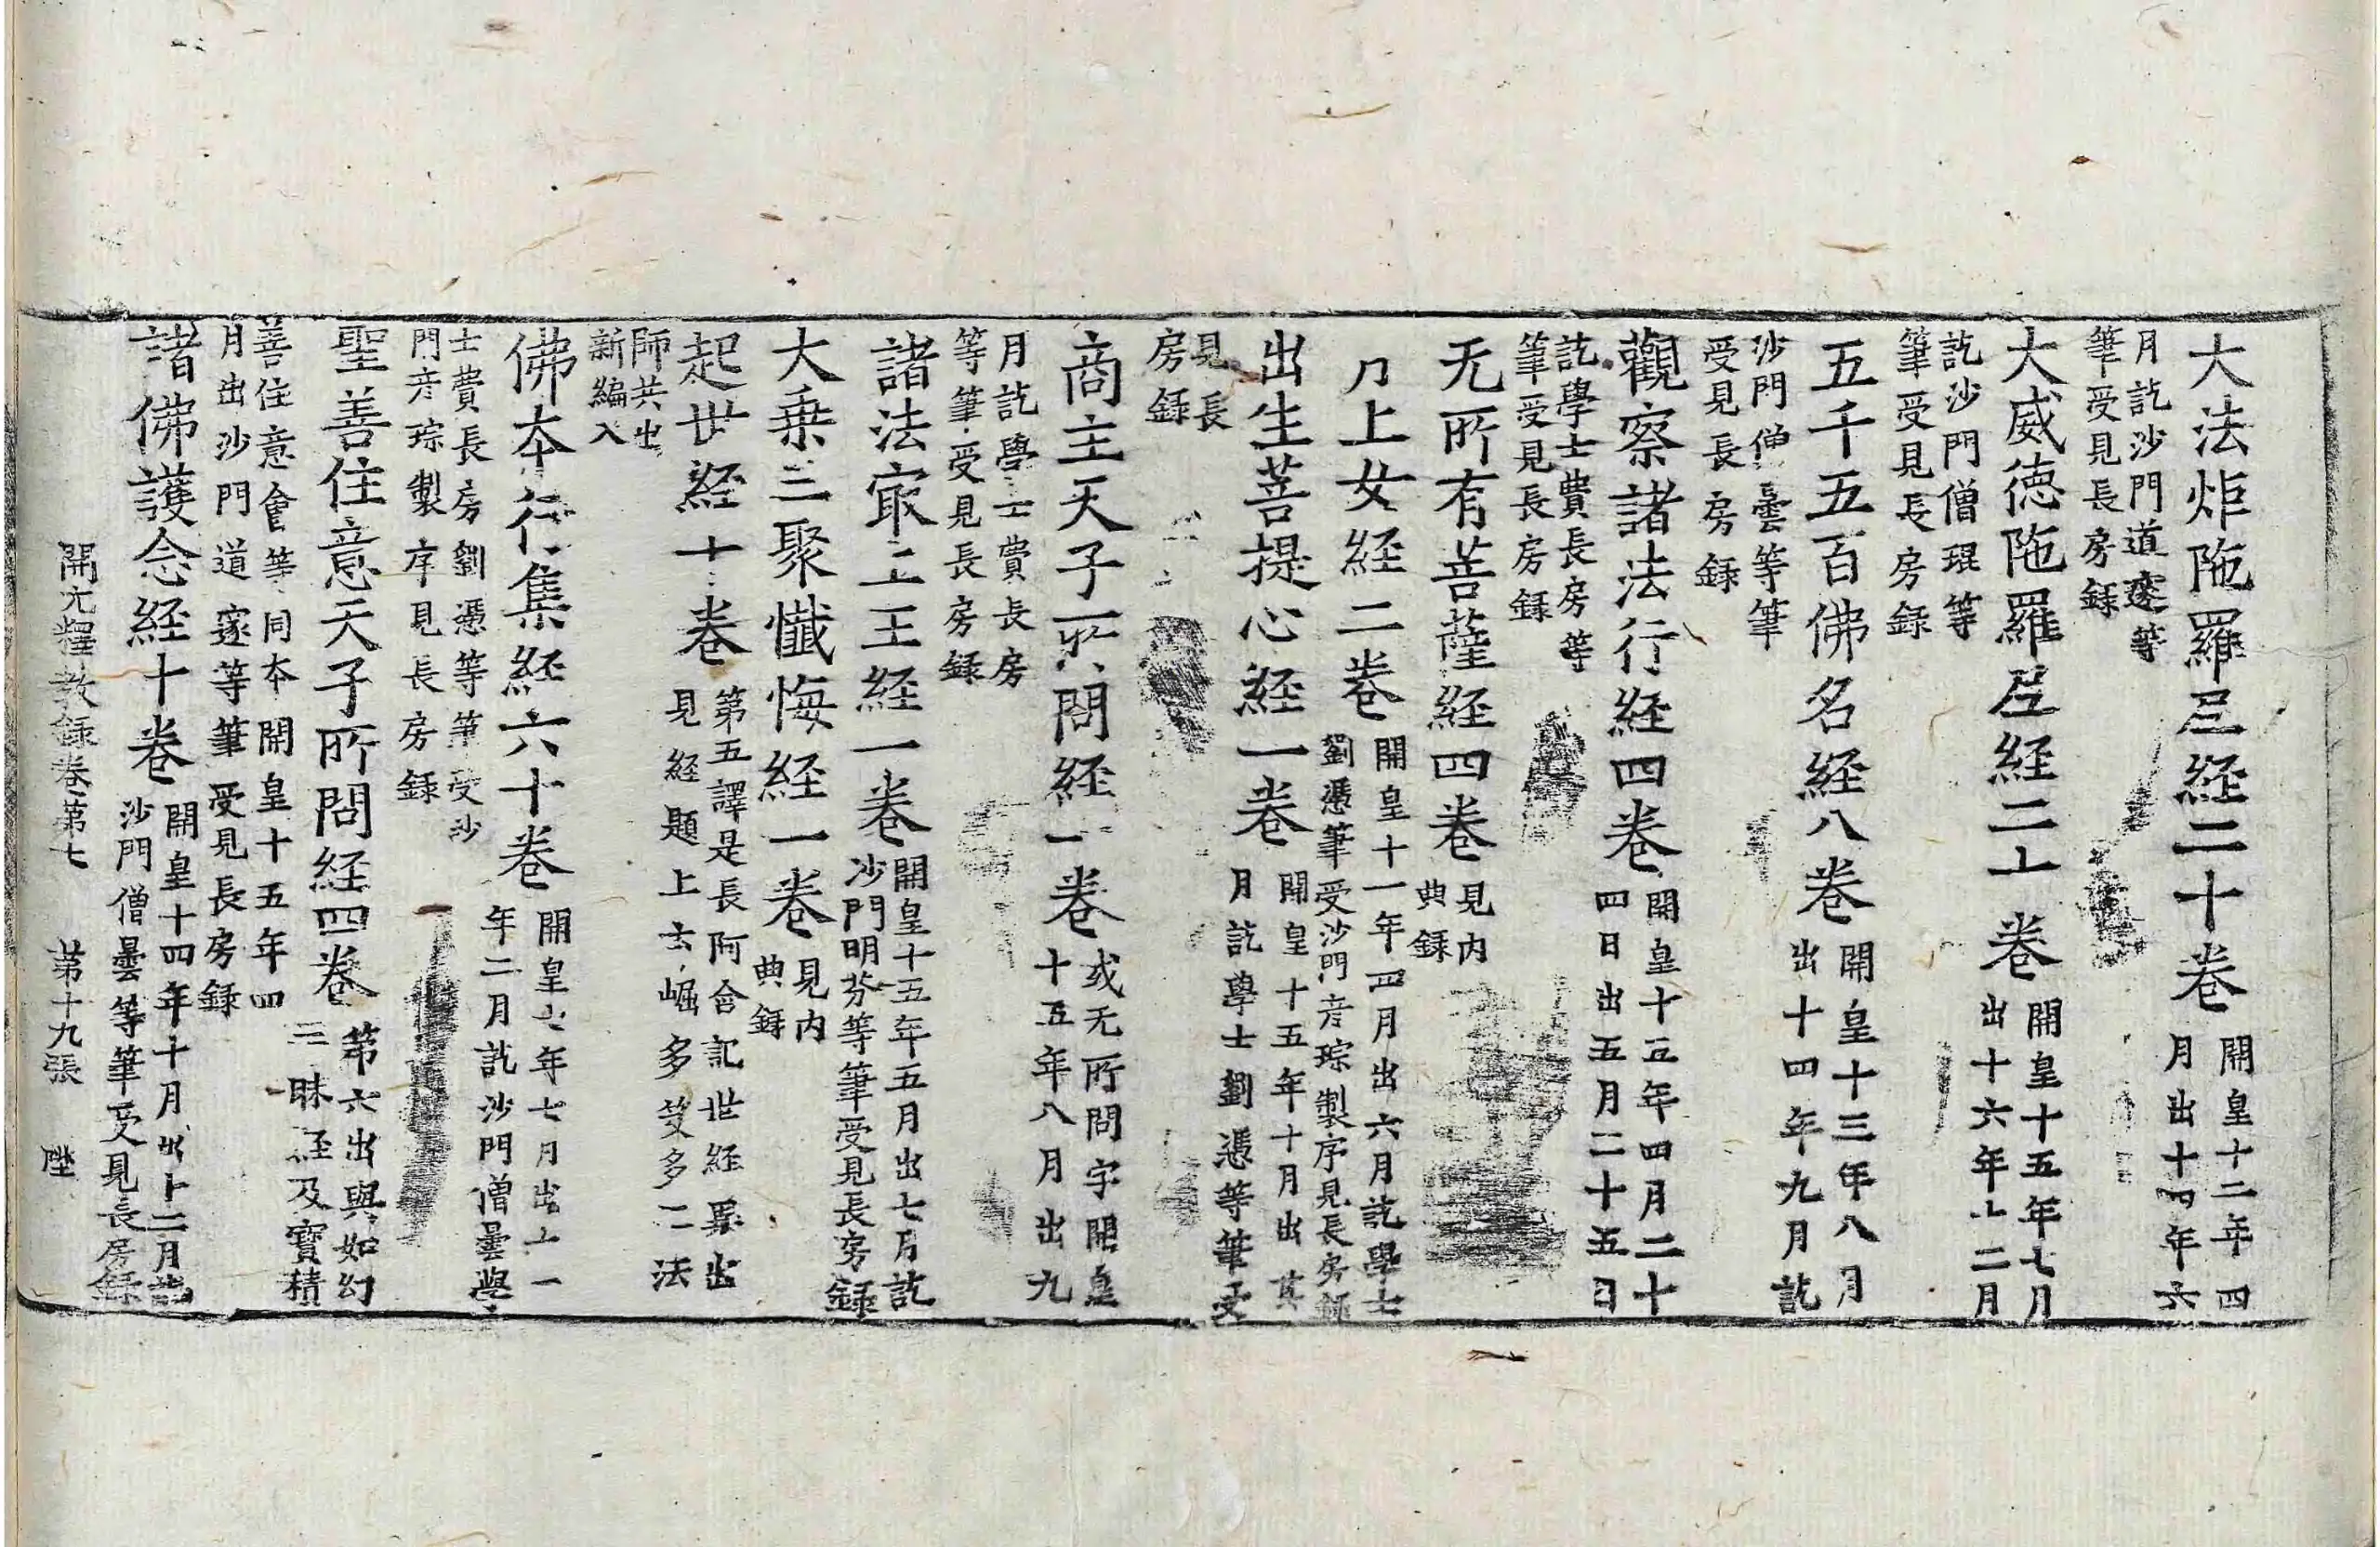 大法炬陁羅尼経二十卷開皇十二年四
月出十四年六
月訖沙門道邃等
筆受見長房録
大威徳陁羅尼経二十卷開皇十五年七月
出十六年十二月
訖沙門僧琨等
筆受見長房録
五千五百佛名経八卷開皇十三年八月
出十四年九月訖
沙門僧曇等筆
受見長房録
觀察諸法行経四卷開皇十五年四月二十
四日出五月二十五日
訖學士費長房等
筆受見長房録
无所有菩薩経四卷見内
典録
月上女経二卷開皇十一年四月出六月訖學士
劉憑筆受沙門彦琮製序見長房録
出生菩提心経一卷開皇十五年十月出其
月訖學士劉憑等筆受
見長
房録
商主天子所問経一卷或无所問字開皇
十五年八月出九
月訖學士費長房
等筆受見長房録
諸法冣上王経一卷開皇十五年五月出七月訖
沙門明芬等筆受見長房録
大乗三聚懺悔経一卷見内
典録
起世経十卷第五譯是長阿含記世経異出
見経題上云崛多笈多二法
師共出
新編入
佛夲行集経六十卷開皇七年七月出十一
年二月訖沙門僧曇學
士費長房劉憑等筆受沙
門彦琮製序見長房録
聖善住意天子所問経四卷第六出與如幻
三昧経及寶積
善住意會等同夲開皇十五年四
月出沙門道邃等筆受見長房録
諸佛護念経十卷開皇十四年十月出十二月訖
沙門僧曇等筆受見長房録
開元釋教録卷第七　第十九張　陞